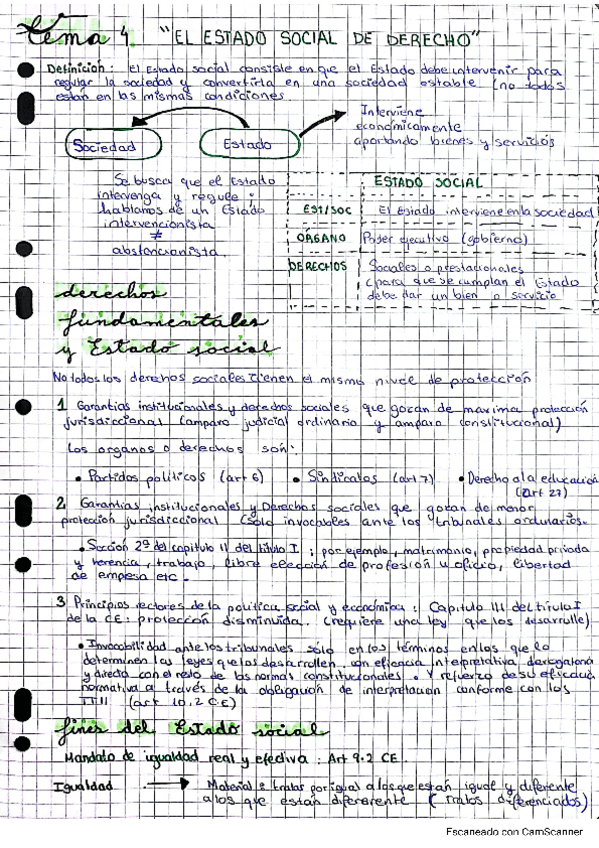 Tema 4. "EL ESTADO SOCIAL DE DERECHO"
Definición: el Estado social consiste en que el Estado debe intervenir para
regular la sociedad y convertirla en una sociedad estable (no todos
están en las mismas condiciones
Sociedad
Estado
Interviene
económicamente
aportando bienes y servicios
Se busca que el Estado
intervenga y regule ;
hablamos de un Estado
intervencionista
≠
abstencionista.
ESTADO SOCIAL
EST/SOC El Estado interviene en la sociedad
ÓRGANO Poder ejecutivo (gobierno)
DERECHOS Sociales o prestacionales
(para que se cumplan el Estado
debe dar un bien o servicio
derechos
fundamentales
y Estado social
No todos los derechos sociales tienen el mismo nivel de protección
1 Garantías institucionales y derechos sociales que gozan de maxima protección
jurisdiccional (amparo judicial ordinario y amparo constitucional)
Los organos o derechos son:
• Partidos políticos (art 6) • Sindicatos (art 7) • Derecho a la educación
(art 27)
2 Garantías institucionales y Derechos sociales que gozan de menor
protección jurisdiccional (sólo invocables ante los tribunales ordinarios.
• Sección 2ª del capitulo II del título I ; por ejemplo, matrimonio, propiedad privada
y herencia, trabajo, libre elección de profesión u oficio, libertad
de empresa etc.
3 Principios rectores de la política social y económica: Capitulo III del título I
de la CE: protección disminuida. (requiere una ley que los desarrolle)
• Invocabilidad ante los tribunales sólo en los términos en los que lo
determinen las leyes que los desarrollen. con eficacia interpretativa, derogatoria
y directa con el resto de las normas constitucionales. Y refuerzo de su eficacia
normativa a través de la obligación de interpretación conforme con los
TTII (art 10.2 CE)
fines del Estado social
Mandato de igualdad real y efectiva : Art 9.2 CE.
Igualdad → Material e tratar por igual a los que están igual y diferente
a los que están diferente (Tratos diferenciados)
Escaneado con CamScanner